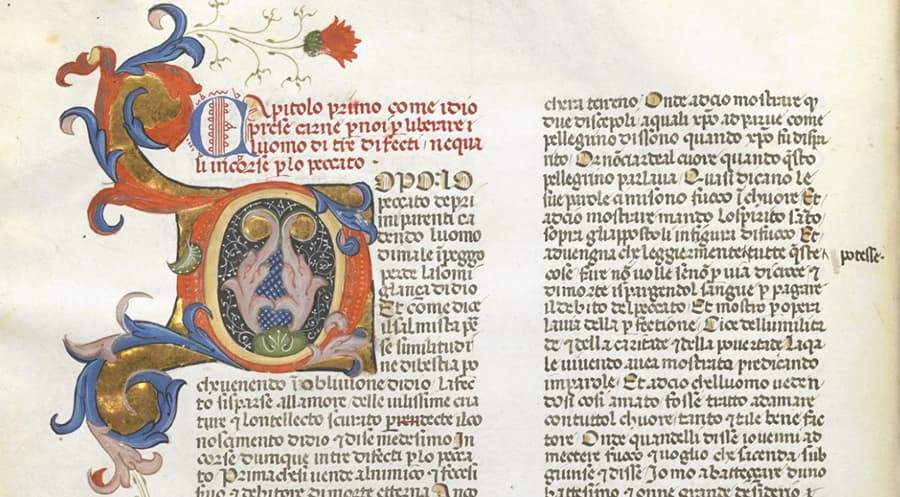 Capitolo primo come idio
prese carne p noi p liberare i
luomo di tre difecti / ne qua
li incorse p lo peccato ·
DOPO · LO
peccato de pri
mi parenti ca
dendo luomo
di male i peggio
perde la somi
glianca di dio
Et come dice
il salmista pe
se similitudi
ne di bestia po
che venendo i obliuione didio / lafec
to sisparse allamore delle uilissime cria
ture & lontellecto scurito perdecte ilco
noscimento didio & dise medesimo In
corse dunque in tre difecti p lo pecca
to Prima che si uende al nimico & fecesi
suo & debitore di morte etterna Anco
chera terreno / Onde adcio mostrare q
due discepoli / aquali xpo adparue come
pellegrino dissono quando xpo fu dispa
rito / Or noncj ardea il cuore quando qsto
pellegrino parlaua / Quasi dicano le
sue parole ci misono fuoco i chuore Et
adcio mostrare mando lospirito sato
sopra gliappostoli in figura di fuoco Et
aduengna che leggiermente tutte qste
cose fare no uolle se no p uia di croce &
di morte ispargendo il sangue p pagare
il debito del peccato / Et mostro p opera
la uia della pfectione / Cioe dellumilita
de & della caritade & della pouertade la qua
le uiuendo auea mostrata predicando
imparole / Et adcio chelluomo ueden
dosi cosi amato fosse tratto adamare
con tutto il chuore / tanto & tale bene fac
tore / Onde quandelli disse io uenni ad
mectere fuoco & uoglio che sicenda / sub
giunse & disse / Io mo a battegare duno
battesimo & onne grande desiderio
potesse